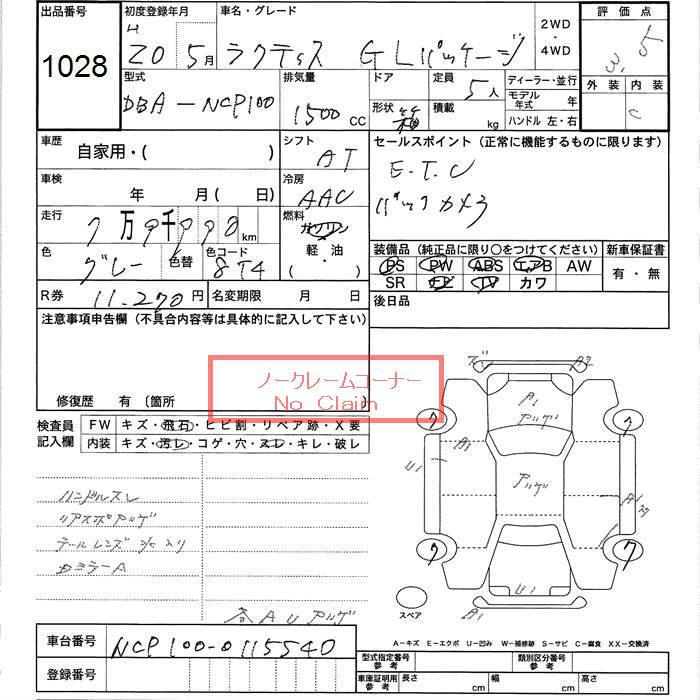 出品番号 初度登録年月 車名・グレード 2WD 評価点
1028 H 20 5月 ラクティス GLパッケージ ・ 4WD 3.5
型式 排気量 ドア 定員 ディーラー・並行 外装 内装
DBA-NCP100 1500 CC 5人 モデル年式 年 C
形状 箱 積載 kg ハンドル 左・右
車歴 自家用・( ) シフト AT セールスポイント (正常に機能するものに限ります)
E.T.C
車検 年 月 ( 日) 冷房 AAC
バックカメラ
走行 7万9千990 km 燃料 ガソリン
軽・油
・( )
色 グレー 色替 色コード 8T4
装備品 (純正品に限り○をつけてください) 新車保証書
PS PW ABS エアB AW 有・無
SR ナビ TV カワ
R券 11.270円 名変期限 月 日 後日品
注意事項申告欄 (不具合内容等は具体的に記入して下さい)
ノークレームコーナー
No Claim
修復歴 有 〔箇所
検査員記入欄 FW キズ・飛石・ヒビ割・リペア跡・X要
内装 キズ・汚レ・コゲ・穴・スレ・キレ・破レ
ハンドルスレ
リアスポアゲ
テールレンズ
ミラーA
各AUアゲ
A1
アゲ
ワ ワ
A1 A1
U1
アゲ
ワ ワ
U1
A1
スペア
A-キズ E-エクボ U-凹み W-補修跡 S-サビ C-腐食 XX-交換済
車台番号 NCP100-0115540
登録番号
型式指定番号 参考 類別区分番号 参考
車庫証明用 参考 長さ cm 幅 cm 高さ cm